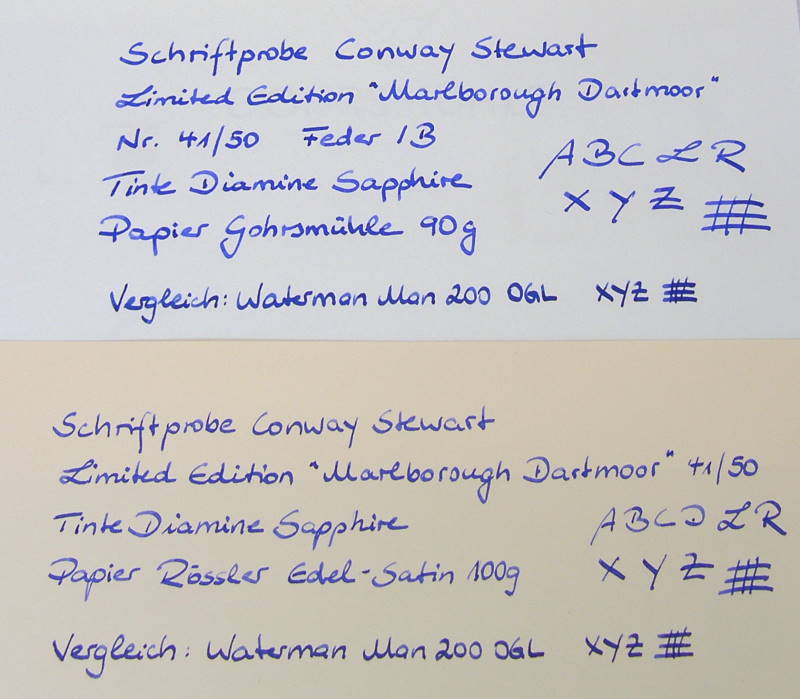 Schriftprobe Conway Stewart
Limited Edition "Marlborough Dartmoor"
Nr. 41/50 Feder IB
Tinte Diamine Sapphire
Papier Gohrsmühle 90g
A B C L R
X Y Z
Vergleich: Waterman Man 200 OGL XYZ
Schriftprobe Conway Stewart
Limited Edition "Marlborough Dartmoor" 41/50
Tinte Diamine Sapphire
A B C D L R
Papier Rössler Edel-Satin 100g
X Y Z
Vergleich: Waterman Man 200 OGL XYZ